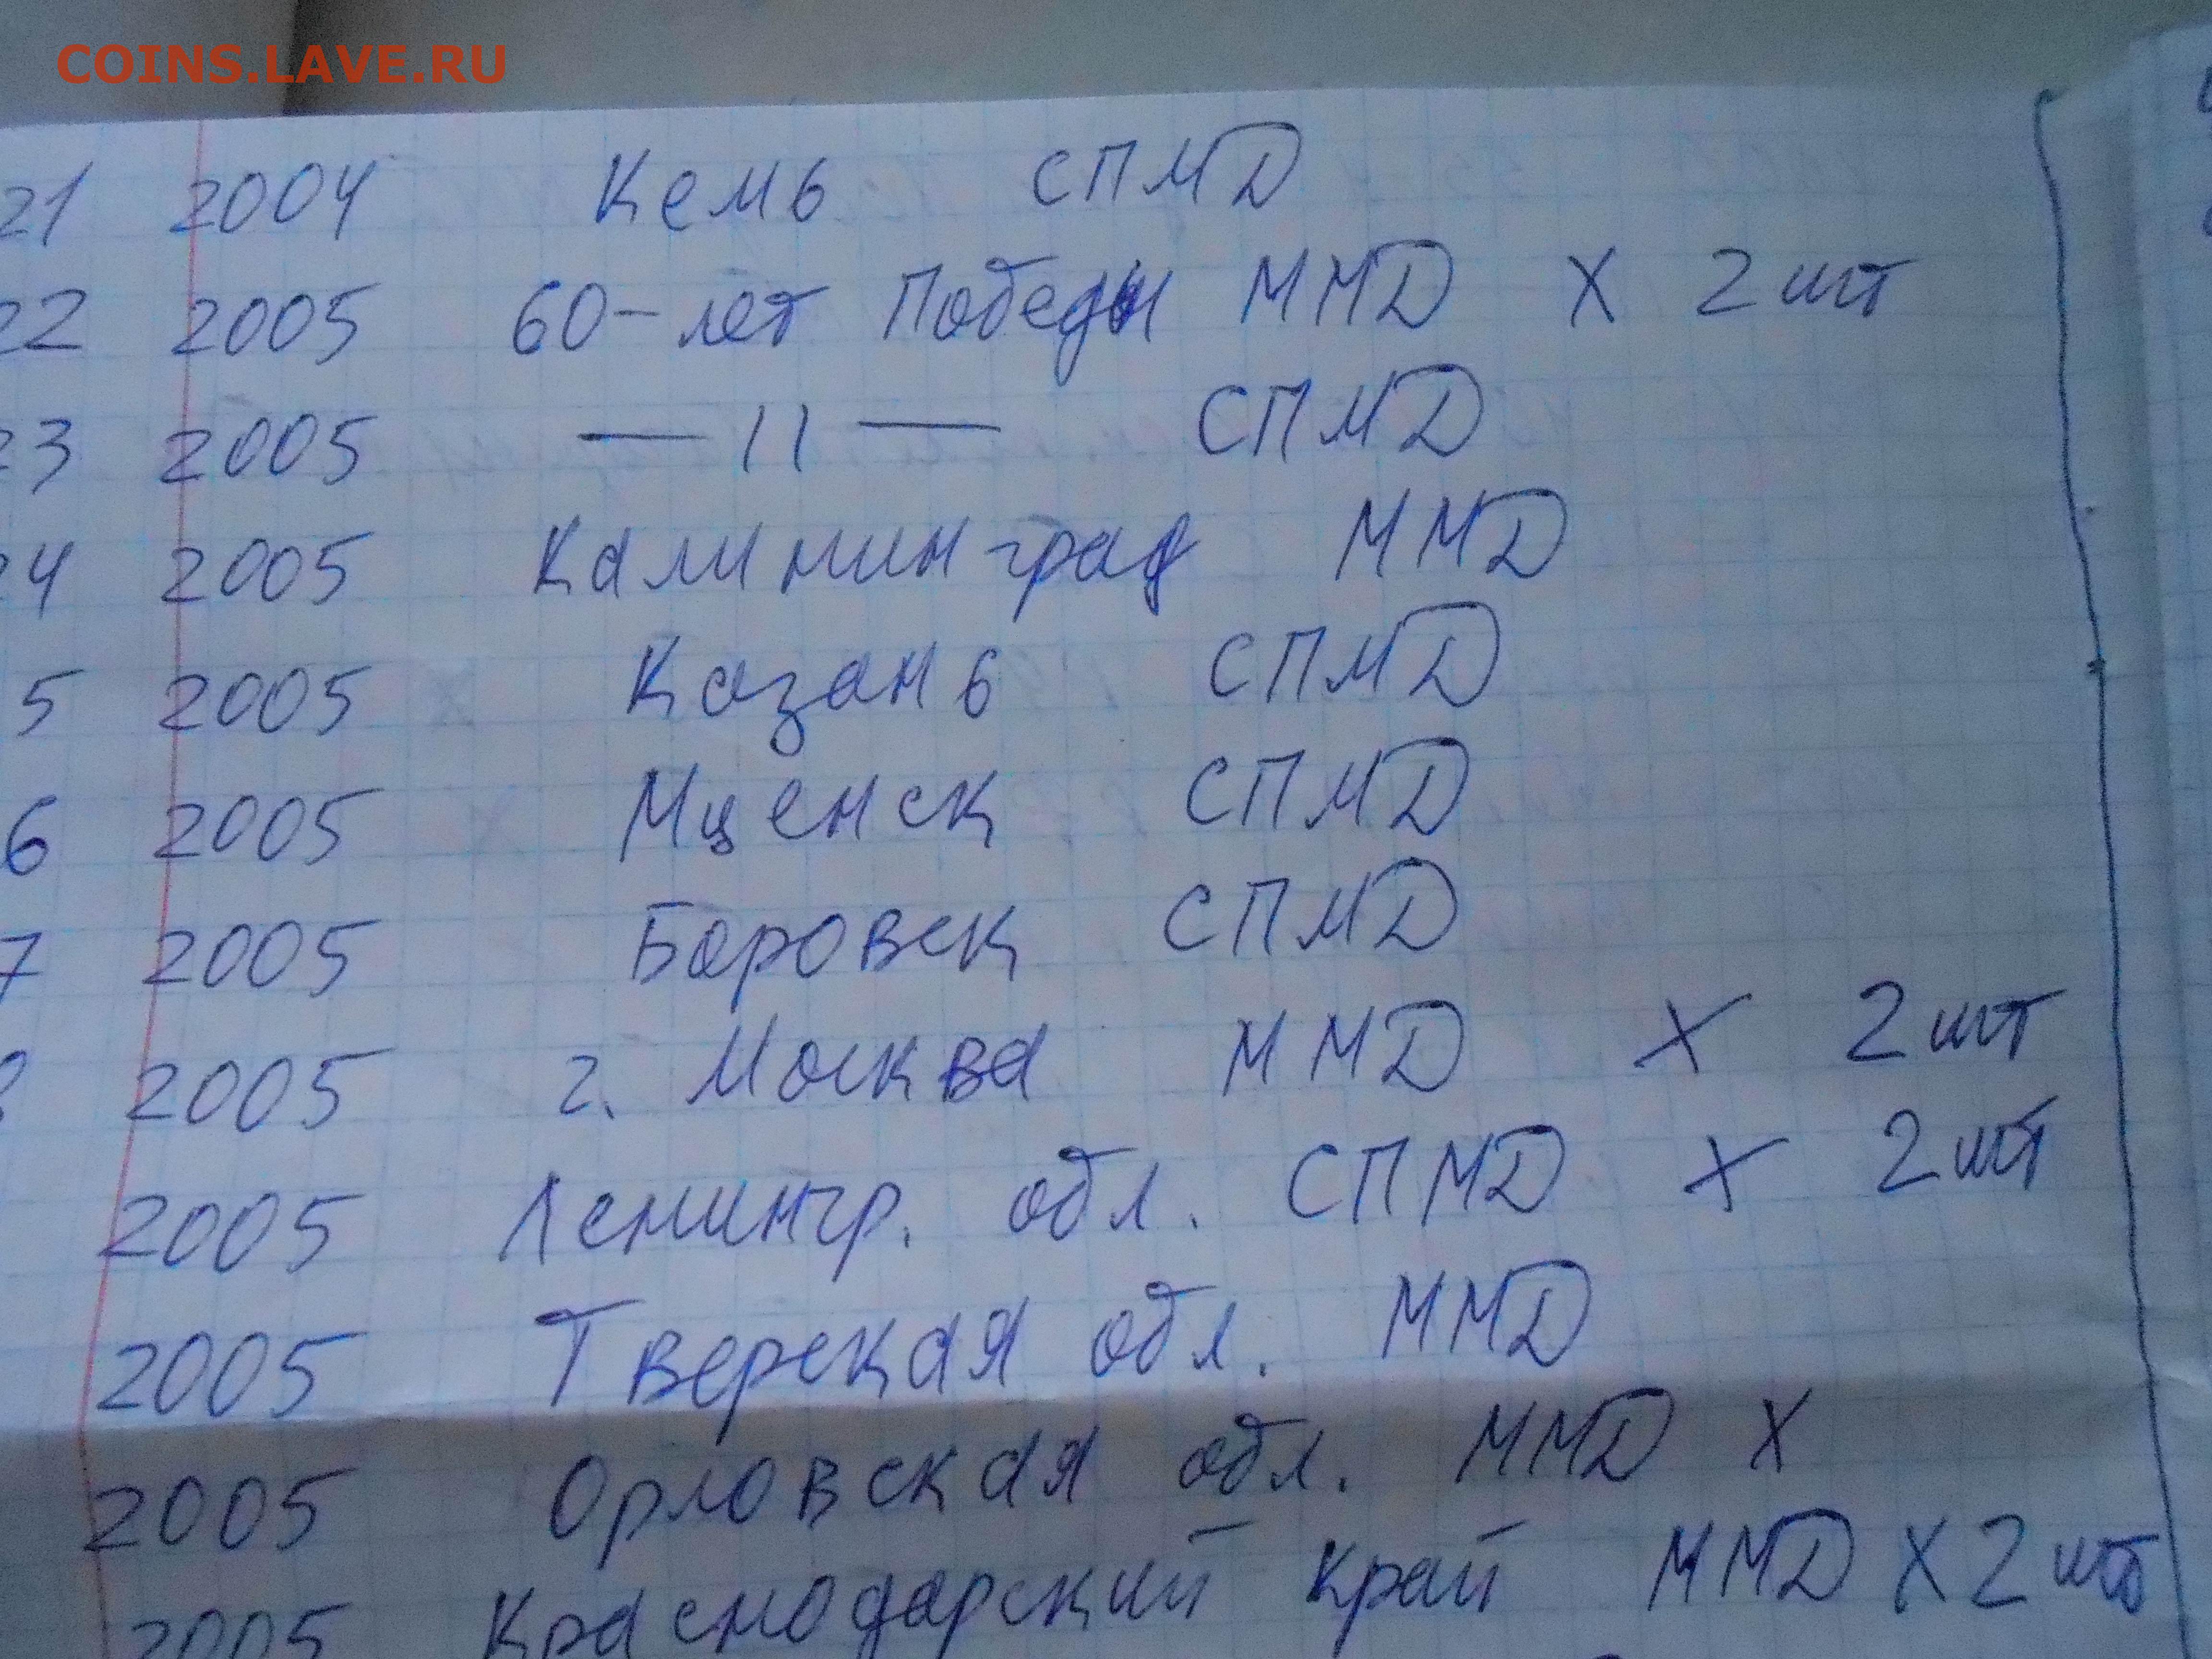 COINS.LAVE.RU
21 2004 Кемь СПМД
22 2005 60-лет Победы ММД X 2 шт
23 2005 — 11 — СПМД
24 2005 Калининград ММД
5 2005 Казань СПМД
6 2005 Мценск СПМД
7 2005 Боровск СПМД
2005 г. Москва ММД X 2 шт
2005 Ленингр. обл. СПМД X 2 шт
2005 Тверская обл. ММД
2005 Орловская обл. ММД X
2005 Краснодарский край ММД X 2 шт